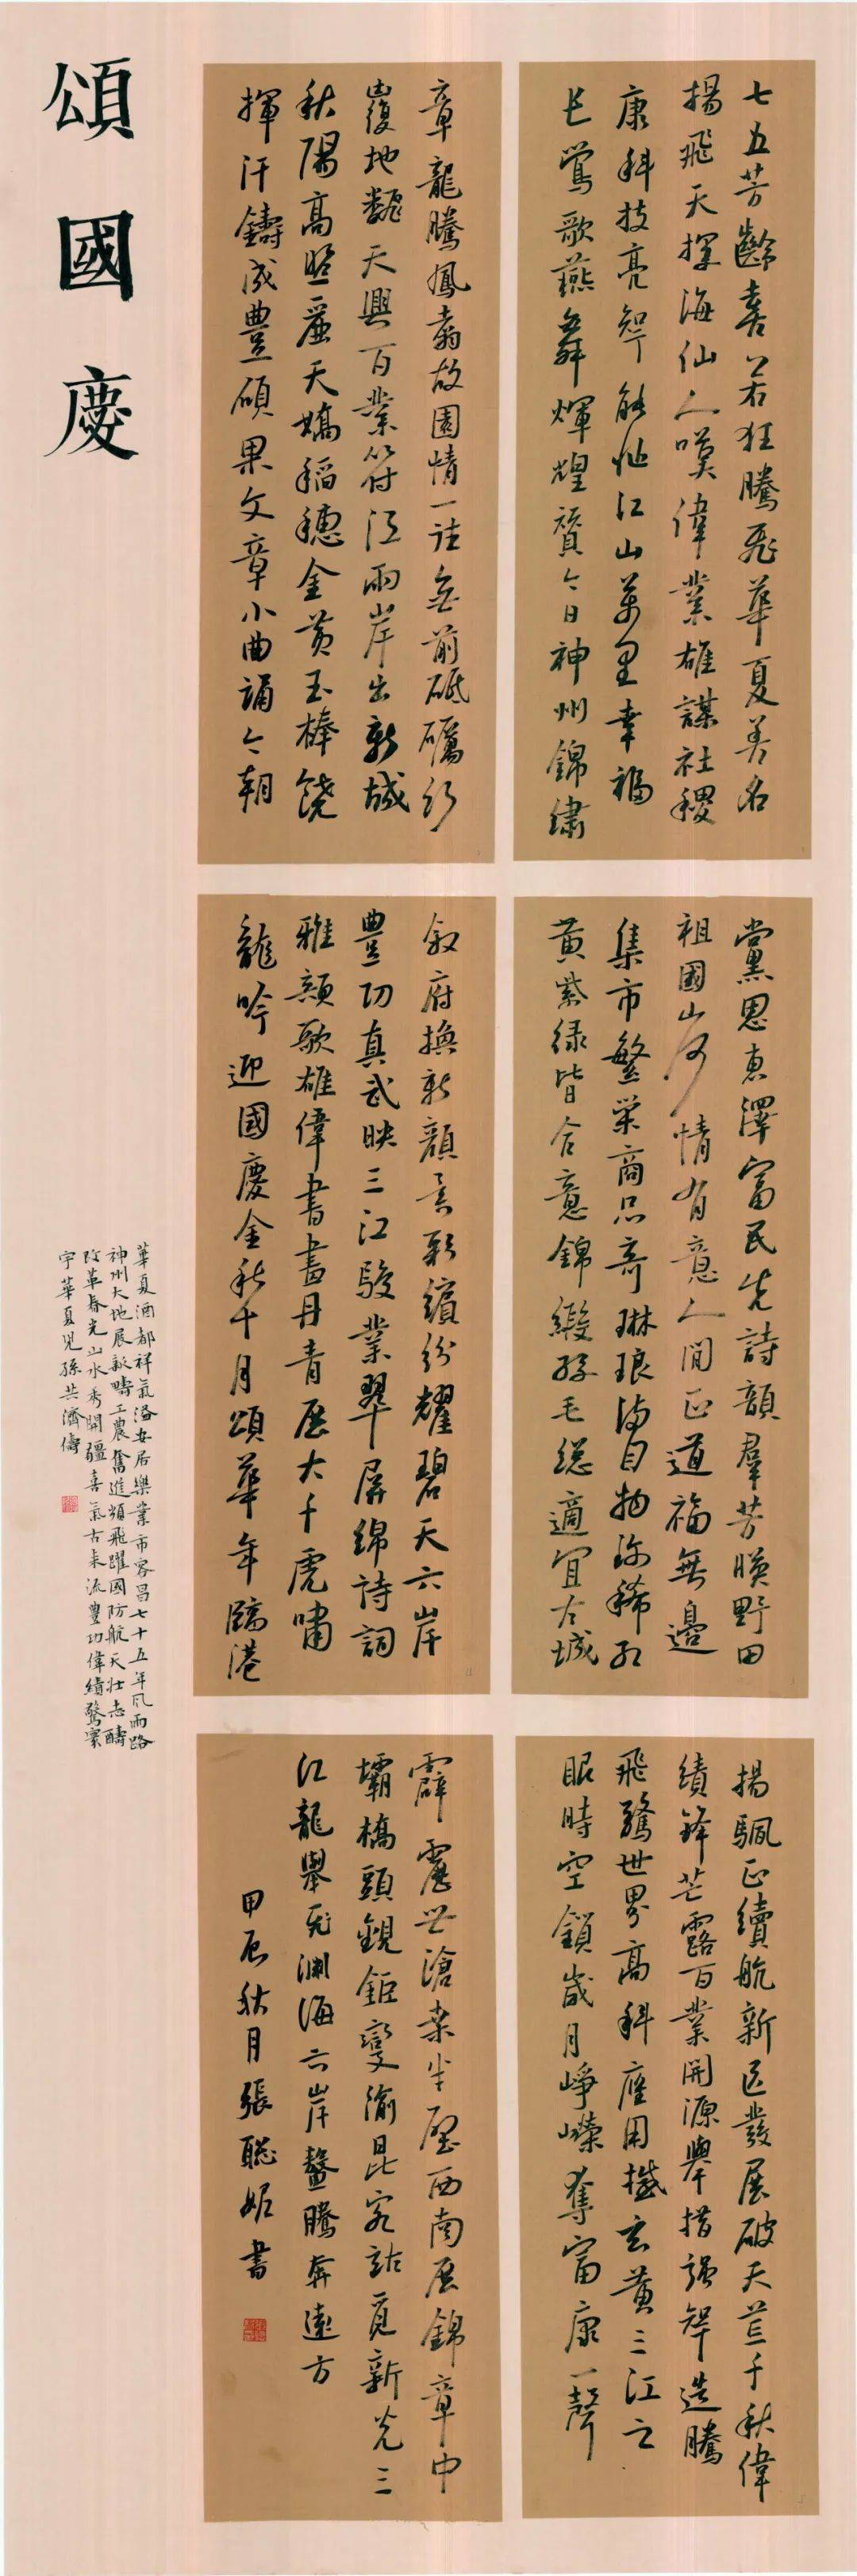 頌國慶
七五芳齡喜若狂騰飛華夏美名
揚飛天探海仙人嘆偉業雄謀社稷
康科技亮智能壯江山萬里幸福
長鶯歌燕舞輝煌贊今日神州錦繡
章龍騰鳳翥故園情一往無前砥礪行
覆地翻天興百業符江兩岸出新城
秋陽高照蜃天嬌稻穗金黃玉棒饒
揮汗鑄成豐碩果文章小曲誦今朝
黨恩惠澤富民先詩韻羣芳映野田
祖國山河情有意人間正道福無邊
集市繁榮商品奇琳琅滿目物珍稀紅
黃紫緑皆合意錦緞羽毛總適宜古城
敘府換新顏景彩繽紛耀碧天六岸
豐功真武映三江駿業翠屏綿詩詞
雅韻歌雄偉書畫丹青展大千虎嘯
龍吟迎國慶金秋十月頌華年臨港
揚颿正續航新區發展破天荒千秋偉
績鋒芒露百業開源舉措強智造騰
飛驚世界高科應用撼玄黃三江之
眼時空鎖歲月崢嶸奪富康一聲
霹靂共滄桑半壁西南展錦章中
壩橋頭觀鉅變渝昆客站覓新光三
江龍舉飛淵海六岸鰲騰奔遠方
甲辰秋月張聰妮書
華夏酒都祥氣溢安居樂業市容昌七十五年風雨路
神州大地展新疇工農奮進頻飛躍國防航天壯志酬
改革春光山水秀開疆喜氣古來流豐功偉績驚寰
宇華夏兒孫共濟儔